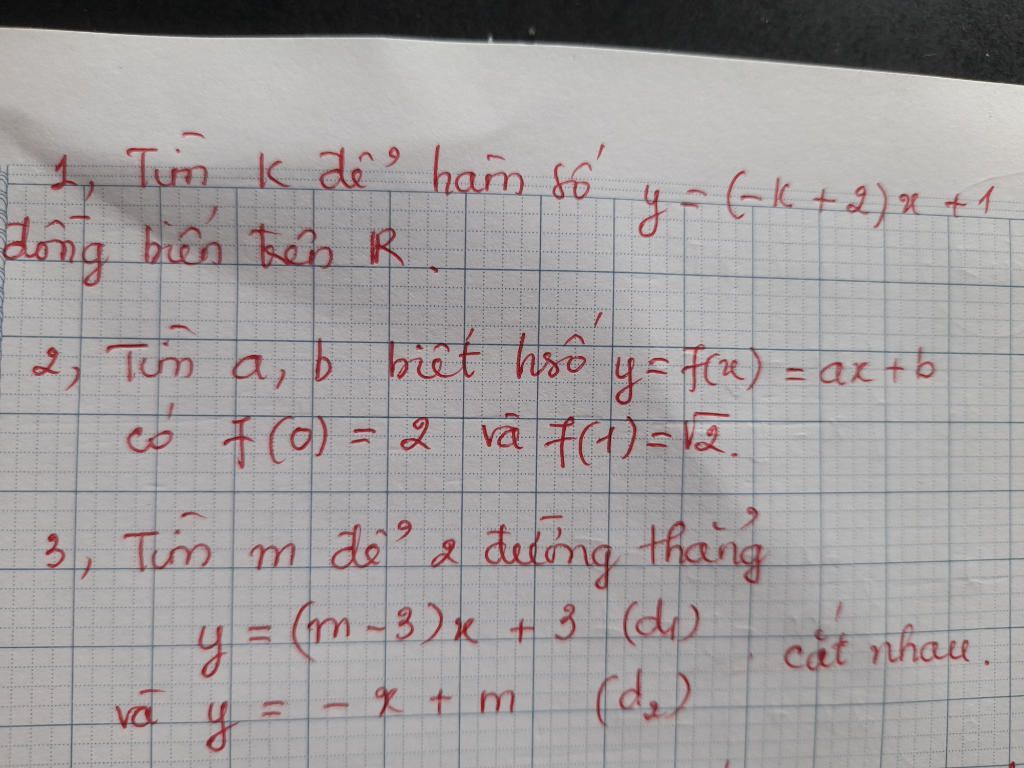 1, Tìm k để hàm số y = (-k + 2)x + 1
đồng biến trên R.
2, Tìm a, b biết hsố y = f(x) = ax + b
có f(0) = 2 và f(1) = √2.
3, Tìm m để 2 đường thẳng
y = (m - 3)x + 3 (d₁)
cắt nhau.
và y = - x + m (d₂)